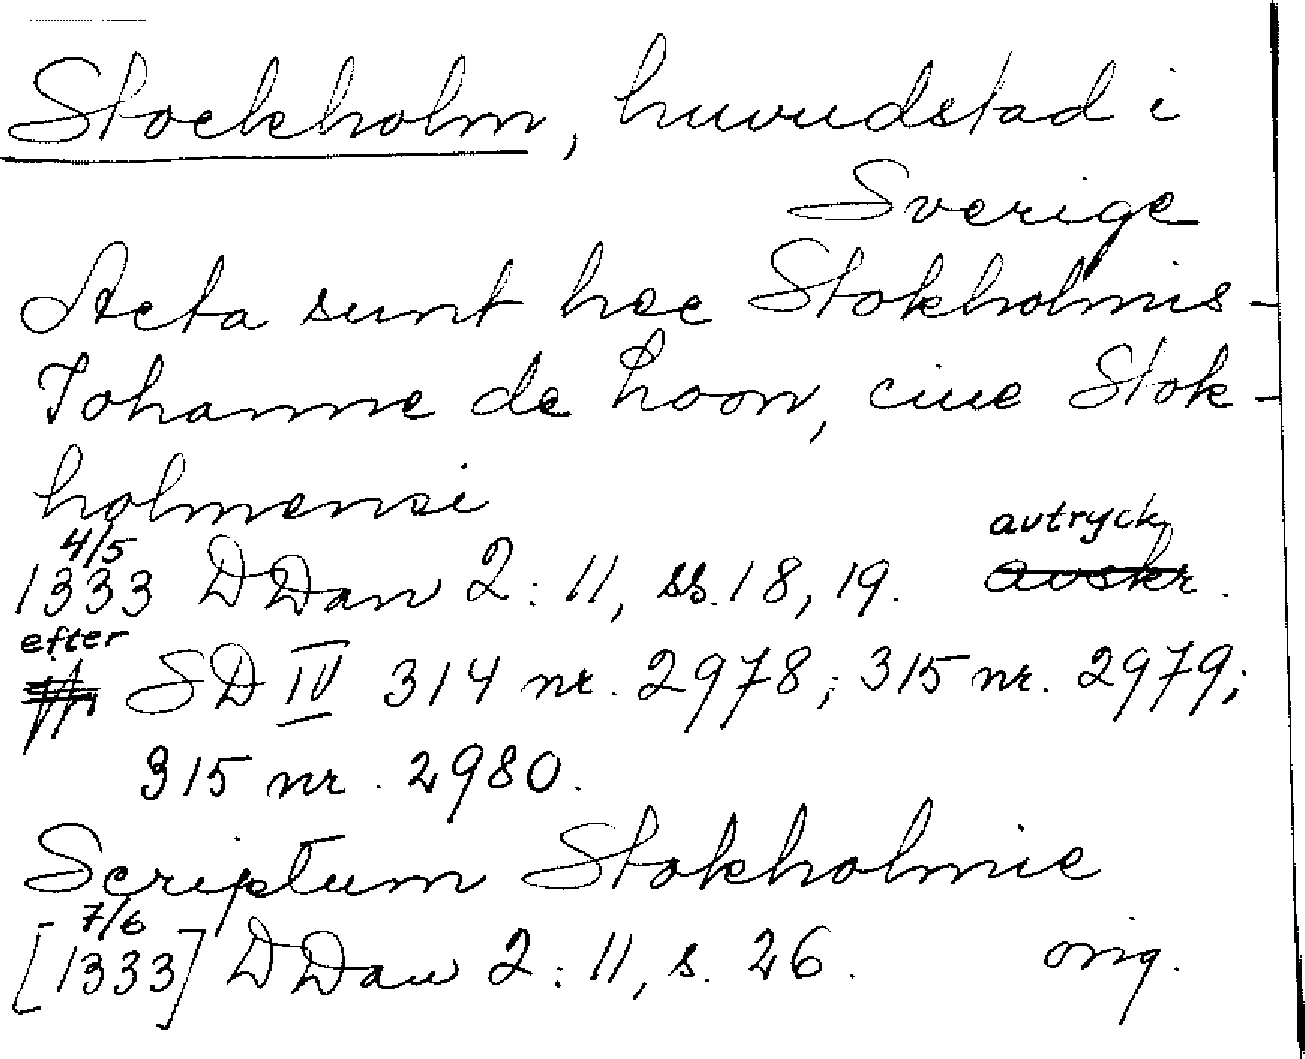 Stockholm, huvudstad i
Sverige
Acta sunt hec Stokholmis -
Johanne de hoon, ciue Stok-
holmensi
4/5 avtryck
1333 DDan 2:11, ss. 18, 19. avskr.
efter
SD IV 314 nr. 2978; 315 nr. 2979;
315 nr. 2980.
Scriptum Stokholmie
- 7/6
[1333] DDan 2:11, s. 26. orig.